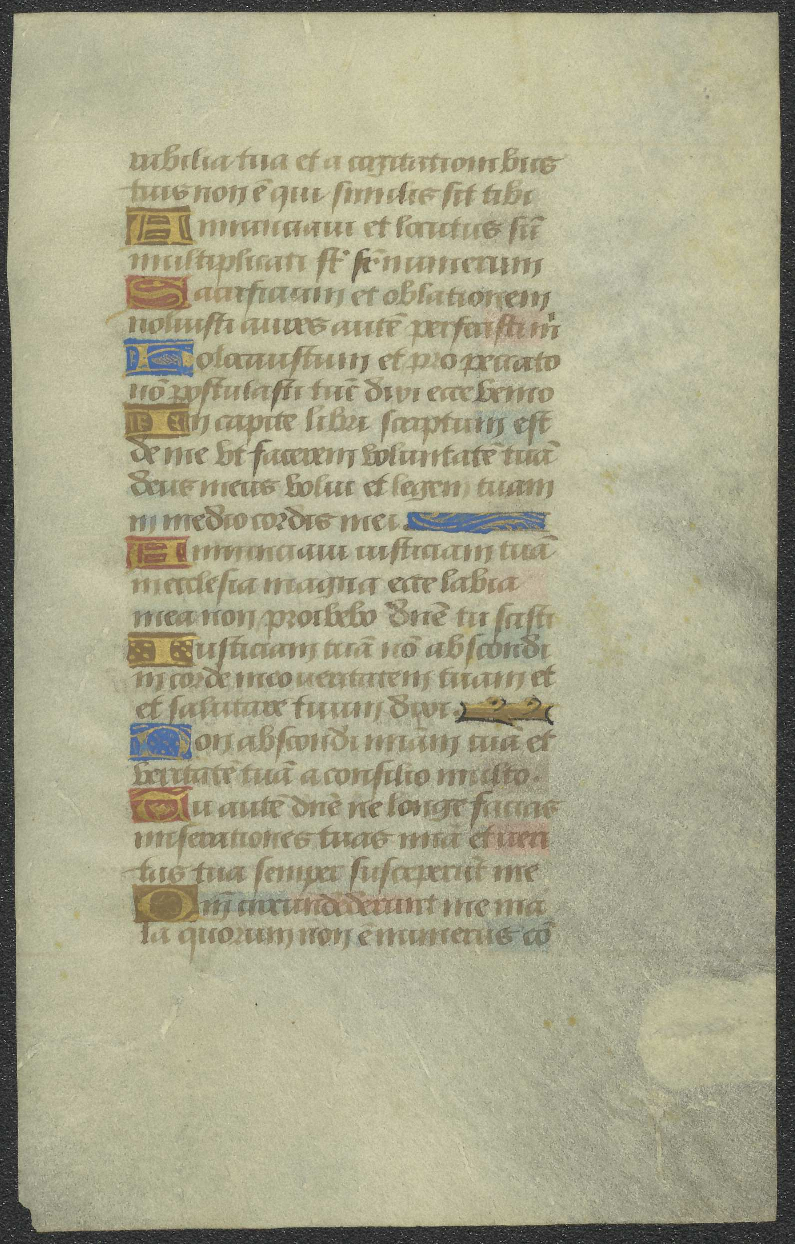 rabilia tua et a cogitationibus
tuis non ē qui similis sit tibi
Annunciavi et locutus sū
multiplicati st̄ sr̄ numerum
Sacrificium et oblationem
noluisti aures autē perfecisti m̄
Holocaustum et pro peccato
nō postulasti tūc dixi ecce venio
In capite libri scriptum est
de me ut facerem voluntatē tuā
deus meus volui et legem tuam
in medio cordis mei
Annunciavi iusticiam tuā
in ecclesia magna ecce labia
mea non prohibebo dn̄e tu scisti
Iusticiam tuā nō abscondi
in corde meo veritatem tuam et
et salutare tuum dixi
Non abscondi mīam tuā et
veritatē tuā a consilio multo
Tu autē dn̄e ne longe facias
miserationes tuas mīa et veri
tas tua semper susceperūt me
Qm̄ circundederunt me ma
la quorum non ē numerus cō